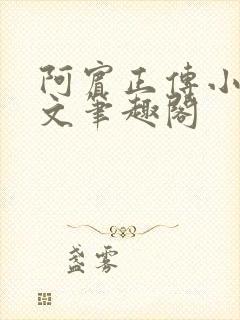 阿賓正傳小
文筆趣閣
盞雾